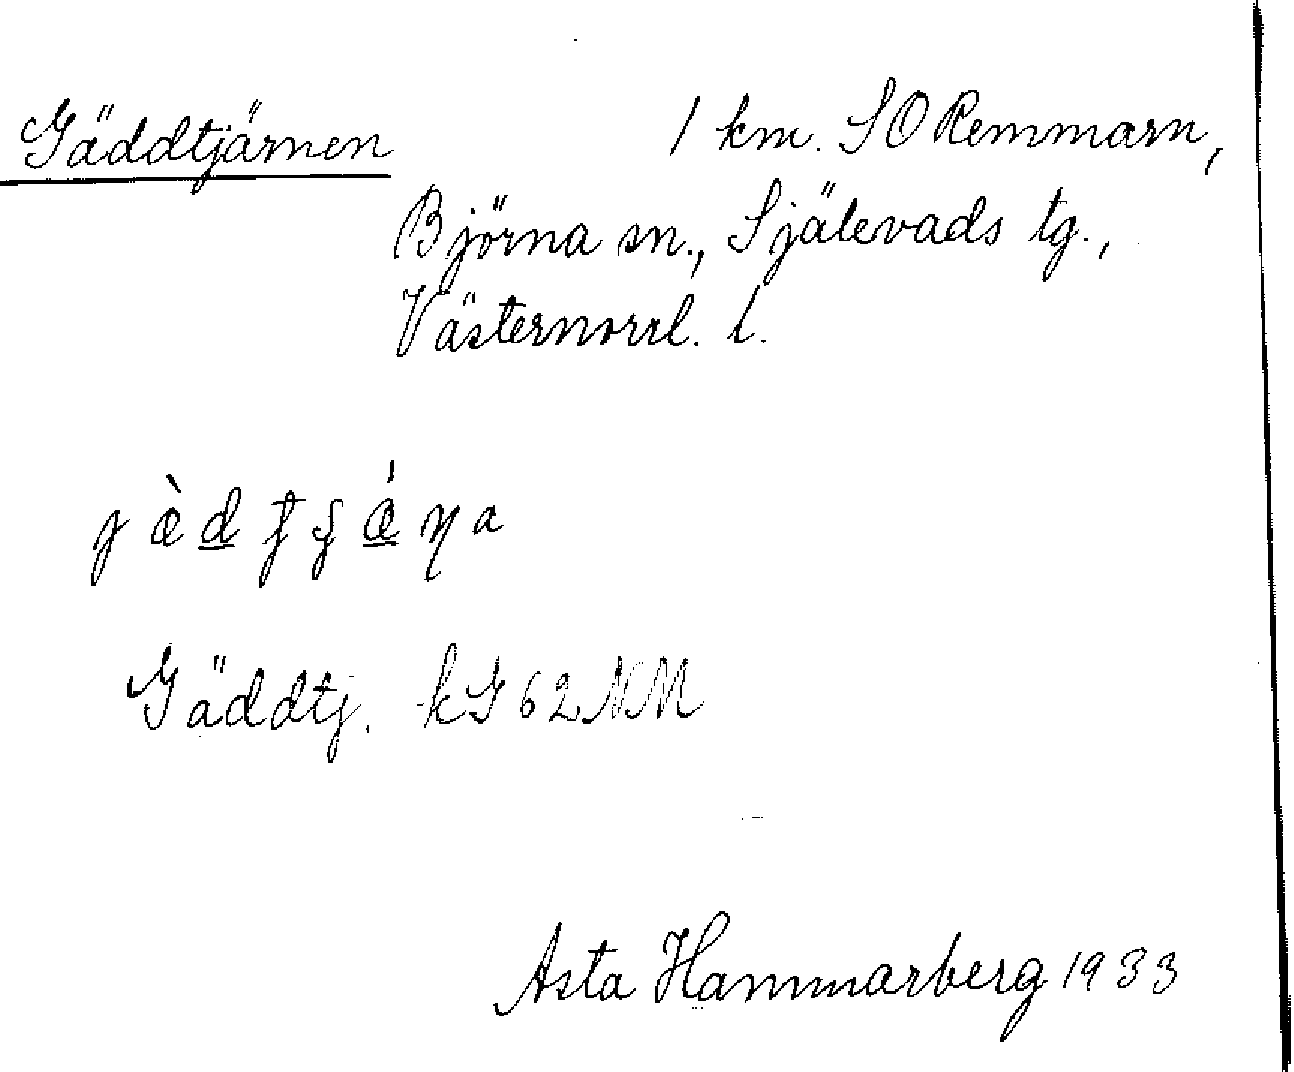 Gäddtjärnen 1 km. SO Remmarn,
Björna sn., Själevads tg.,
Västernorrl. l.
Gäddtj. kG 62 NM
Asta Hammarberg 1933